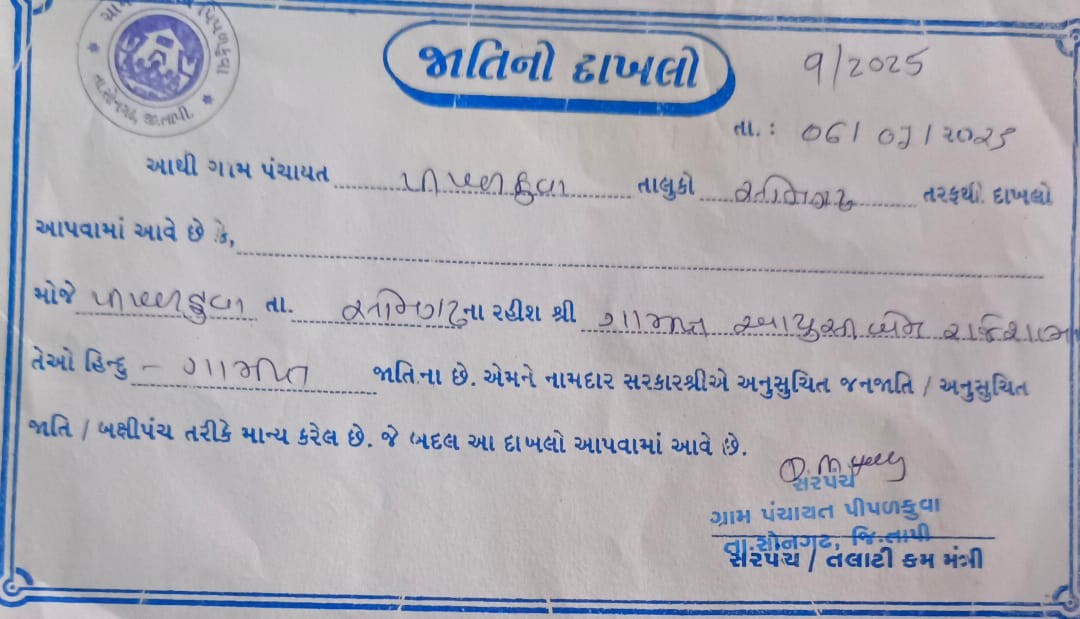 પીપળકુવા
તા.સોનગઢ, જી.તાપી.
જાતિનો દાખલો
9/2025
તા. : 06/07/2025
આથી ગામ પંચાયત પીપળકુવા તાલુકો સોનગઢ તરફથી દાખલો
આપવામાં આવે છે કે,
મોજે પીપળકુવા તા. સોનગઢના રહીશ શ્રી ગામીત
તેઓ હિન્દુ - ગામીત જાતિના છે. એમને નામદાર સરકારશ્રીએ અનુસુચિત જનજાતિ / અનુસુચિત
જાતિ / બક્ષીપંચ તરીકે માન્ય કરેલ છે. જે બદલ આ દાખલો આપવામાં આવે છે.
સરપંચ
ગ્રામ પંચાયત પીપળકુવા
તા.સોનગઢ, જિ.તાપી
સરપંચ / તલાટી કમ મંત્રી